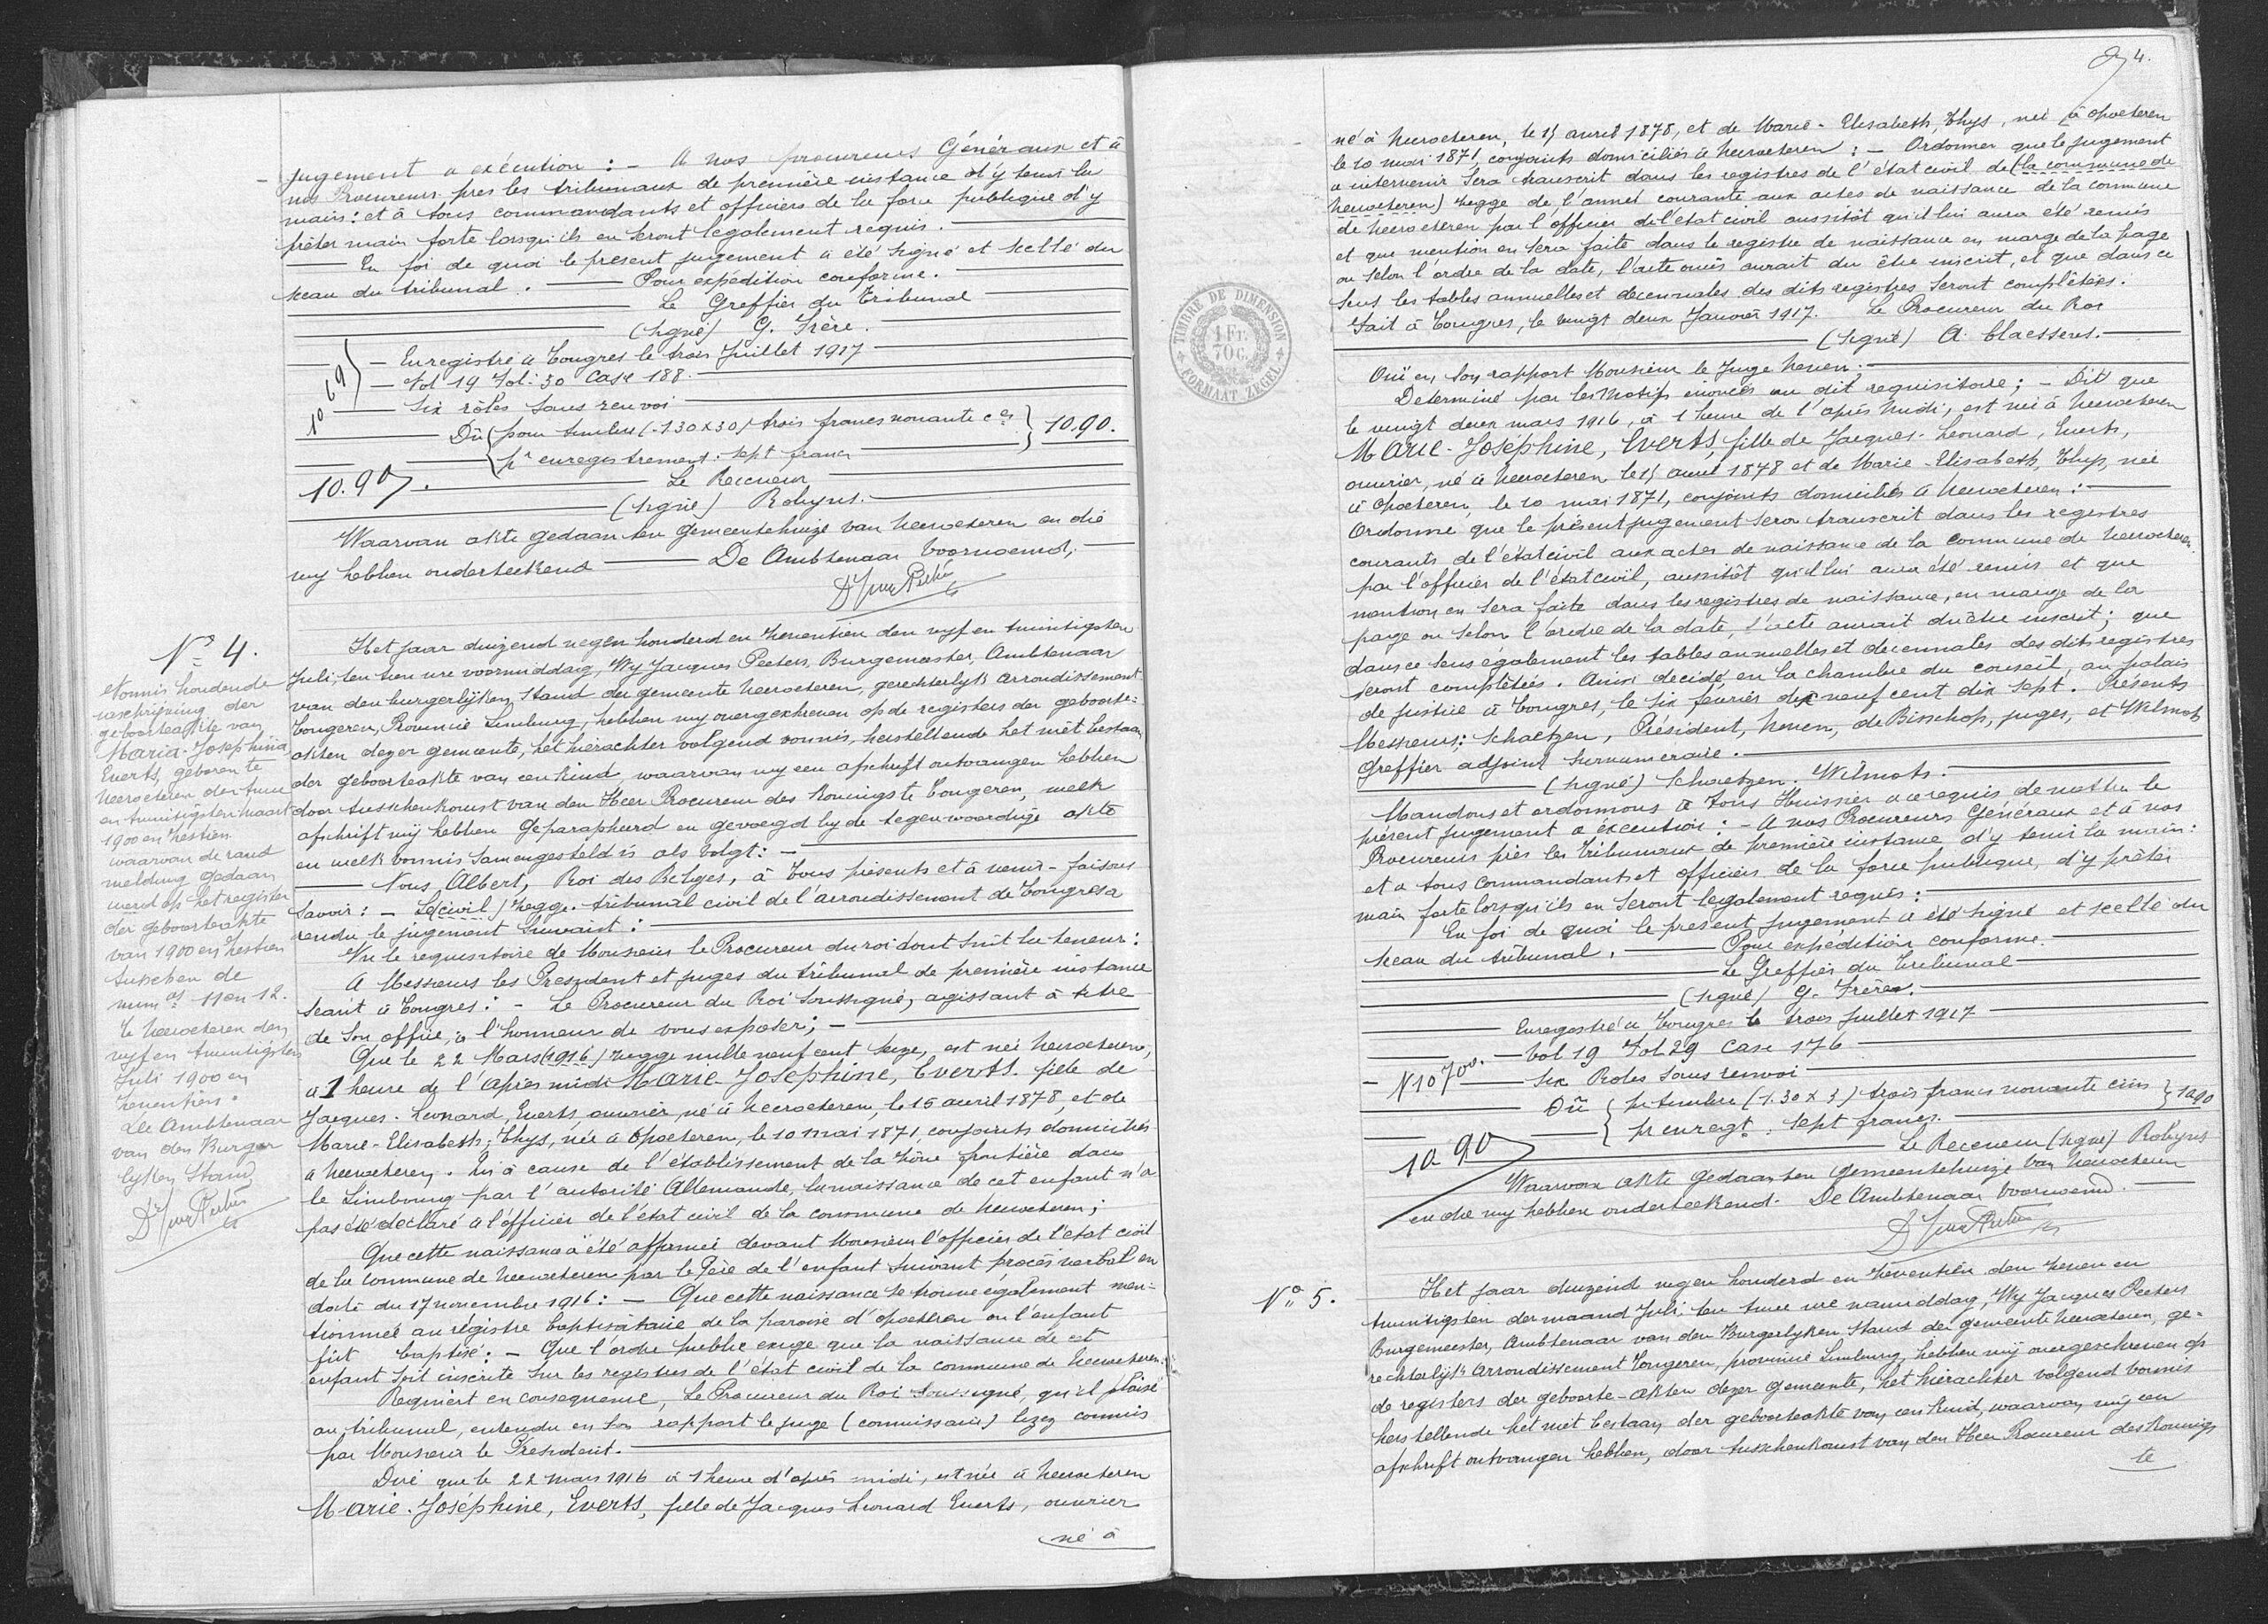 jugement a exécution : — A nos procureurs Généraux et à
nos Procureurs pres les tribunaux de première instance d'y tenir la
main : et à tous commandants et officiers de la force publique d'y
prêter main forte lorsqu'ils en seront légalement requis.
En foi de quoi le present jugement a été signé et scellé du
sceau du tribunal. — Pour expédition conforme.
Le Greffier du Tribunal
(signé) G. Frère.
— Enregistré à Tongres le trois Juillet 1917
— Vol 19 Fol: 30 Case 188.
Six rôles sans renvoi
Dû pour timbre (1.30 x 30) trois francs nonante ces
pr enregistrement : sept francs
10.90.
10.90
Le Receveur
(signé) Robyns.
Waarvan akte gedaan ten gemeentehuize van Neeroeteren en die
wy hebben onderteekend — De Ambtenaar Voornoemd,
No 4.
Vonnis houdende
inschrijving der
geboorteakte van
Maria-Josephina
Everts, geboren te
Neeroeteren den twee
en twintigsten maart
1900 en zestien
waarvan de rand
melding gedaan
werd op het register
der geboorteakte
van 1900 en zestien
tusschen de
numos 11 en 12.
Te Neeroeteren den
vyf en twintigsten
Juli 1900 en
zeventien.
De Ambtenaar
van den Burger
lyken Stand
Het jaar duizend negen honderd en zeventien den vyf en twintigsten
Juli, ten tien ure voormiddag, Wy Jacques Peeters, Burgemeester, Ambtenaar
van den burgerlyken Stand der gemeente Neeroeteren, gerechterlyk Arrondissement
Tongeren, Provincie Limburg, hebben wy overgeschreven op de registers der geboorte-
akten dezer gemeente, het hierachter volgend vonnis, herstellende het niet bestaan
der geboorteakte van een kind, waarvan wy een afschrift ontvangen hebben
door tusschenkomst van den Heer Procureur des Konings te Tongeren, welk
afschrift wij hebben geparapheerd en gevoegd by de tegenwoordige akte
en welk vonnis samengesteld is als volgt : —
— Nous, Albert, Roi des Belges, à tous présents et à venir - faisons
savoir : — Le (civil) zegge. tribunal civil de l'arrondissement de Tongres a
rendu le jugement suivant :
Vu le requisitoire de Monsieur le Procureur du roi dont suit la teneur :
A Messieurs les President et juges du tribunal de première instance
séant à Tongres : — Le Procureur du Roi Soussigné, agissant à titre
de son office, a l'honneur de vous exposer ; —
Que le 22 Mars (1916) zegge mille neuf cent seize, est née Neeroeteren,
à 1 heure de l'après midi Marie-Joséphine, Everts. fille de
Jacques-Leonard, Everts, ouvrier, né à Neeroeteren, le 15 avril 1878, et de
Marie-Elisabeth, Thys, née à Opoeteren, le 10 mai 1871, conjoints domiciliés
à Neeroeteren. Qu'à cause de l'établissement de la zône frontière dans
le Limbourg par l'autorité Allemande, la naissance de cet enfant n'a
pas été déclaré à l'officier de l'état civil de la commune de Neeroeteren ;
Que cette naissance a été affirmée devant Monsieur l'officier de l'état civil
de la commune de Neeroeteren par le Père de l'enfant suivant procès verbal en
date du 17 novembre 1916 : — Que cette naissance se trouve également men-
tionnée au régistre baptistaire de la paroise d'opoeteren ou l'enfant
fut baptisé : — Que l'ordre public exige que la naissance de cet
enfant soit inscrite sur les registres de l'état civil de la commune de Neeroeteren.
Requiert en consequence, Le Procureur du Roi soussigné, qu'il plaise
au tribunal, entendu en son rapport le juge (commissaire) lezez commis
par Monsieur le President.
Dire que le 22 mars 1916 à 1 heure d'après midi, est née à Neeroeteren
Marie-Joséphine, Everts, fille de Jacques Leonard Everts, ouvrier
né à
4.
né à Neeroeteren, le 15 avril 1878, et de Marie-Elisabeth, Thys, née à Opoeteren
le 10 mai 1871, conjoints domiciliés à Neeroeteren : — Ordonner que le jugement
a intervenir sera transcrit dans les registres de l'état civil de (la commune de
Neeroeteren) zegge de l'année courante aux actes de naissance de la commune
de Neeroeteren par l'officier de l'état civil aussitôt qu'il lui aura été remis
et que mention en sera faite dans le registre de naissance en marge de la page
ou selon l'ordre de la date, l'acte omis aurait du être inscrit, et que dans ce
sens les tables annuelles et decennales des dits registres seront complêtées.
Fait à Tongres, le vingt deux Janvier 1917. Le Procureur du Roi
(signé) A. Claessens.
TIMBRE DE DIMENSION
1 Fr.
70 C.
FORMAAT ZEGEL
Ouï en son rapport Monsieur le Juge Neven ;
Determiné par les motifs énoncés au dit requisitoire ; — Dit que
le vingt deux mars 1916, à 1 heure de l'après midi, est née à Neeroeteren
Marie-Joséphine, Everts, fille de Jacques-Leonard, Everts,
ouvrier, né à Neeroeteren le 15 avril 1878 et de Marie-Elisabeth, Thys, née
à Opoeteren, le 10 mai 1871, conjoints domiciliés à Neeroeteren : —
Ordonne que le présent jugement sera transcrit dans les registres
courants de l'état civil aux actes de naissance de la commune de Neeroeteren.
par l'officier de l'état civil, aussitôt qu'il lui aura été remis et que
mention en sera faite dans les registres de naissance, en marge de la
page ou selon l'ordre de la date, l'acte aurait du être inscrit ; que
dans ce sens également les tables annuelles et decennales des dits registres
seront complêtées. Ainsi decidé en la chambre du conseil, au palais
de justice à Tongres, le six fevrier dix neuf cent dix sept. Présents
Messieurs : Schaetzen, Président, Neven, de Bisschop, juges, et Wilmots
Greffier adjoint surnumeraire.
(signé) Schaetzen. Wilmots.
Mandons et ordonnons à tous Huissier a ce requis de mettre le
présent jugement a éxecution : — A nos Procureurs Généraux et à nos
Procureurs près les tribunaux de première instance d'y tenir la main :
et a tous commandants et officiers de la force publique, d'y prêter
main forte lorsqu'ils en seront légalement requis :
En foi de quoi le present jugement a été signé et scellé du
sceau du tribunal. — Pour expédition conforme.
Le Greffier du Tribunal
(signé) G. Frère.
Enregistré à Tongres le trois Juillet 1917
Vol 19 Fol 29 Case 176
Six Roles sans renvoi
Dû pr timbre (1.30 x 3) trois francs nonante cens
pr enregt. : sept francs.
10.90
10.90
Le Receveur (signé) Robyns
Waarvan akte gedaan ten gemeentehuize van Neeroeteren
en die wy hebben onderteekend. De Ambtenaar Voornoemd.
No 5.
Het jaar duizend negen honderd en zeventien den zeven en
twintigsten der maand Juli, ten twee ure namiddag, Wy Jacques Peeters
Burgemeester, Ambtenaar van den Burgerlyken Stand der gemeente Neeroeteren, ge-
rechterlyk Arrondissement Tongeren, provincie Limburg, hebben wij overgeschreven op
de registers der geboorte-akten dezer gemeente, het hierachter volgend vonnis
herstellende het niet bestaan der geboorteakte van een kind, waarvan wij een
afschrift ontvangen hebben, door tusschenkomst van den Heer Procureur des Konings
te